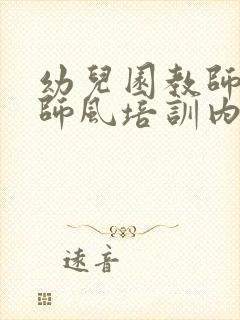 幼兒園教師
師風培訓內
遠音